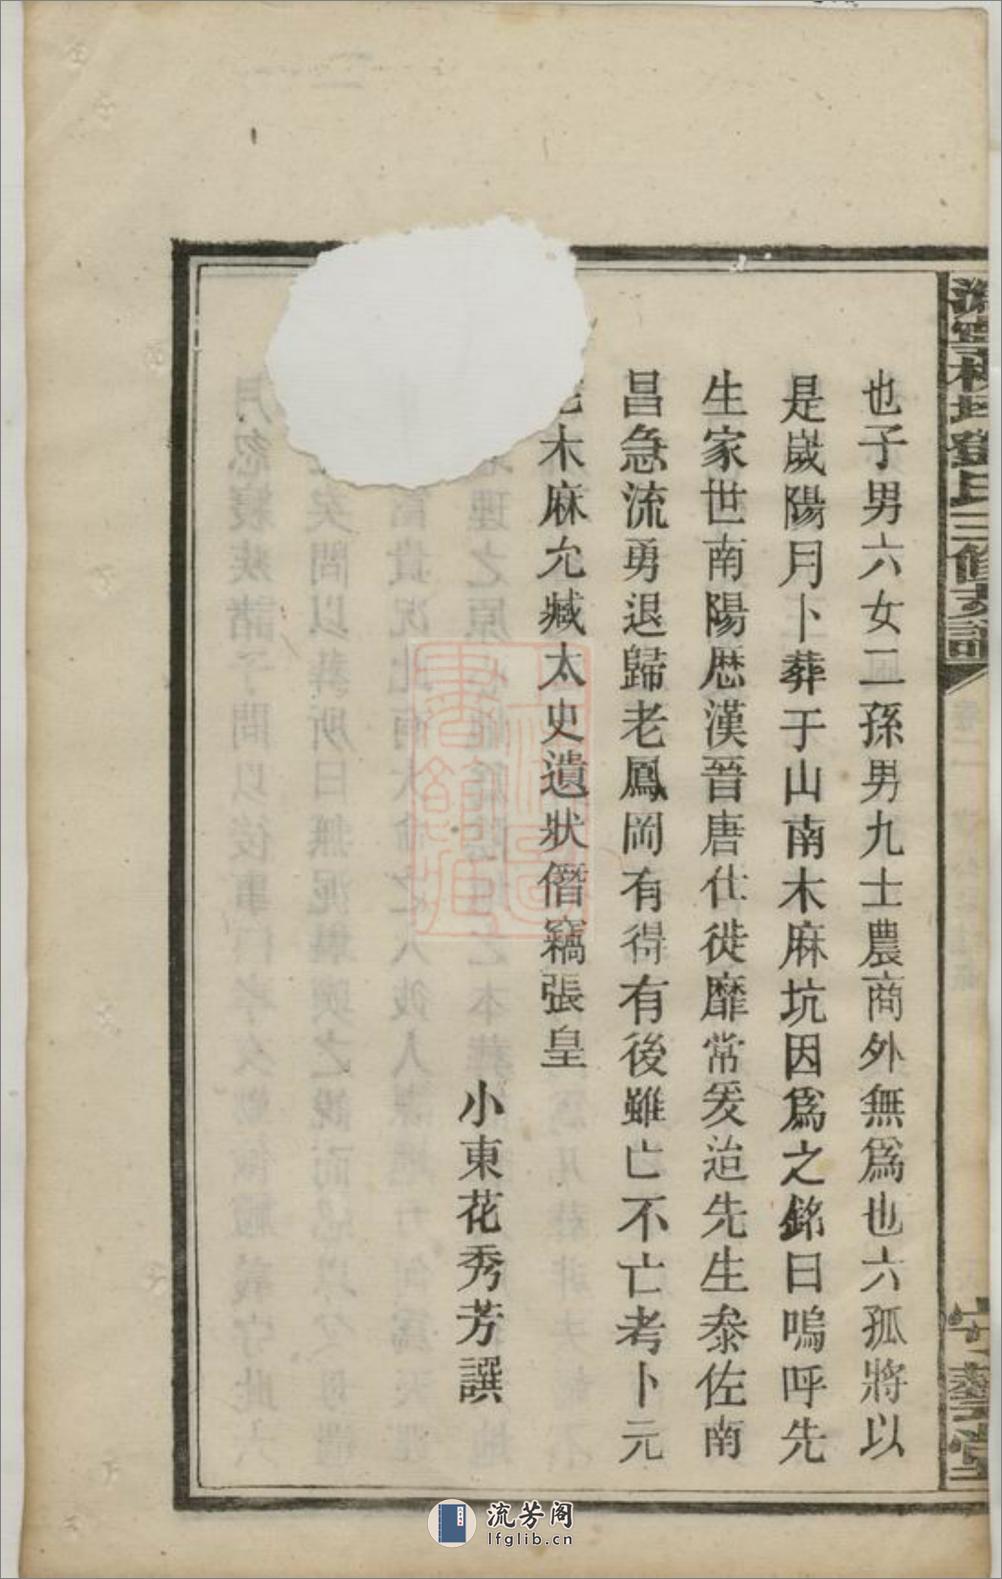 也子男六女二孫男九士農商外無爲也六孤將以
是嵗陽月卜葬于山南木麻坑因爲之銘曰嗚呼先
生家世南陽厯漢晉唐仕徙靡常爰迨先生叅佐南
昌急流勇退歸老鳳岡有得有後雖亡不亡考卜元
木麻允臧太史遺狀僭竊張皇
小東花秀芳譔
鄧氏三修支譜
堂
流芳阁
lfglib.cn